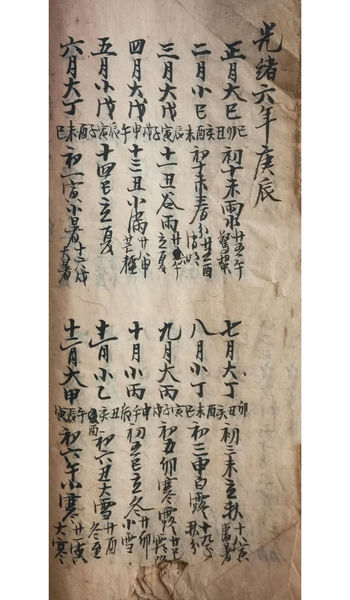 光緒六年庚辰
正月大己巳卯丑初十未雨水廿五午驚蟄
二月小己亥酉未初十未春分廿五酉清明
三月大戊辰寅子十一丑谷雨廿六午立夏
四月大戊戌申午十三丑小滿廿八申芒種
五月小戊辰寅子十四巳立夏
六月大丁酉未巳初一寅小暑十六戌大暑
七月大丁卯丑亥初三未立秋十八寅處暑
八月小丁酉未巳初三申白露十九秋分
九月大丙寅子戌初五卯寒露廿巳霜降
十月小丙申午辰初五巳立冬廿卯小雪
十一月小乙丑亥酉初六丑大雪廿酉冬至
十二月大甲午辰寅初六午小寒廿寅大寒